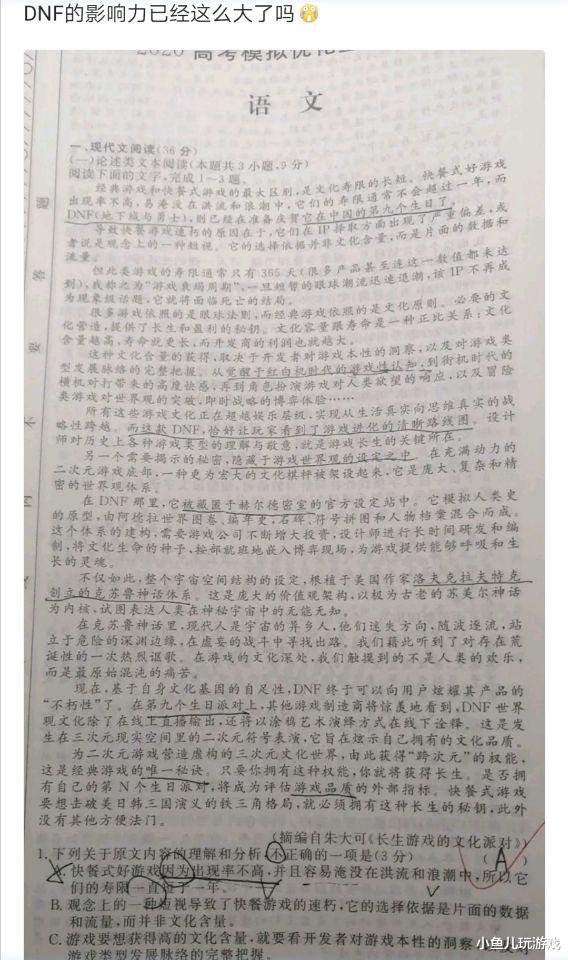 DNF的影响力已经这么大了吗
2020 高考模拟优化
语 文
一、现代文阅读(36 分)
(一)论述类文本阅读(本题共 3 小题,9 分)
阅读下面的文字,完成 1~3 题。
经典游戏和快餐式游戏的最大区别,是文化寿限的长短。快餐式好游戏
出现率不高,易淹没在洪流和浪潮中,它们的寿限通常不会超过一年,而
DNF(地下城与勇士),则已经在准备庆贺它在中国的第九个生日了。
导致快餐游戏速朽的原因在于,它们在 IP 择取方面出现了严重偏差,或
者说是观念上的一种短视。它的选择依据并非文化含量,而是片面的数据和
流量。
但此类游戏的寿限通常只有 365 天(很多产品甚至连这一数值都未达
到),我称之为“游戏衰竭周期”,一旦短暂的眼球潮流迅速退潮,该 IP 不再成
为现象级话题,它就将面临死亡的结局。
很多游戏依照的是眼球法则,而经典游戏依照的是文化原则。必要的文
化营造,提供了长生和盈利的秘钥。文化容量跟寿命是一种正比关系:文化
含量越高,寿命就更长,而开发商的利润也就越大。
这种文化含量的获得,取决于开发者对游戏本性的洞察,以及对游戏类
型发展脉络的完整把握。从觉醒于红白机时代的游戏性认知,到街机时代的
横机对打带来的高度快感,再到角色扮演游戏对人类欲望的响应,以及冒险
类游戏对世界观的突破,即时战略的博弈体验……
所有这些游戏文化正在超越娱乐层级,实现从生活真实向思维真实的战
略性跨越。而这款 DNF,恰好让玩家看到了游戏进化的清晰路线图。设计
师对历史上各种游戏类型的理解与敬意,就是游戏长生的关键所在。
另一个需要揭示的秘密,隐藏于游戏世界观的设定之中。在充满动力的
二次元游戏底部,一种更为宏大的文化棋枰被架设起来,它是庞大、复杂和精
密的世界观体系。
在 DNF 那里,它被藏匿于赫尔德密室的官方设定站中。它模拟人类史
的原型,由阿德拉世界图卷、编年史、石碑、符号拼图和人物档案混合而成。
这个体系的建构,需要游戏公司不断增大投资,设计师进行长时间研发和编
制,将文化生命的种子,按部就班地嵌入博弈现场,为游戏提供能够呼吸和生
长的灵魂。
不仅如此,整个宇宙空间结构的设定,根植于美国作家洛夫克拉夫特克
创立的克苏鲁神话体系。这是庞大的价值观架构,以极为古老的苏美尔神话
为内核,试图表达人类在神秘宇宙中的无能无知。
在克苏鲁神话里,现代人是宇宙的异乡人,他们迷失方向,随波逐流,站
立于危险的深渊边缘,在虚妄的战斗中寻找出路。我们藉此听到了对存在荒
诞性的一次热烈讴歌。在游戏的文化深处,我们触摸到的不是人类的欢乐,
而是最原始混沌的痛苦。
现在,基于自身文化基因的自足性,DNF 终于可以向用户炫耀其产品的
“不朽性”了。在第九个生日派对上,其他游戏制造商将惊羡地看到,DNF 世界
观文化除了在线上直播输出,还将以涂鸦艺术演绎方式在线下诠释。这是发
生在三次元现实空间里的二次元符号表演,它旨在炫示自己拥有的文化品质。
为二次元游戏营造虚构的三次元文化世界,由此获得“跨次元”的权能,
这是经典游戏的唯一秘诀。只要你拥有这种权能,你就将获得长生。是否拥
有自己的第 N 个生日派对,将成为评估游戏品质的外部指标。快餐式游戏
要想击破美日韩三国演义的铁三角格局,就必须拥有这种长生的秘钥,此外
没有其他方便法门。
(摘编自朱大可《长生游戏的文化派对》)
1. 下列关于原文内容的理解和分析,不正确的一项是(3 分) ( A )
A. 快餐式好游戏因为出现率不高,并且容易淹没在洪流和浪潮中,所以它
们的寿限一直短于一年。
B. 观念上的一种短视导致了快餐游戏的速朽,它的选择依据是片面的数据
和流量,而并非文化含量。
C. 游戏要想获得高的文化含量,就要看开发者对游戏本性的洞察以及对
游戏类型发展脉络的完整把握。
小鱼儿玩游戏
题
答
要
不
内